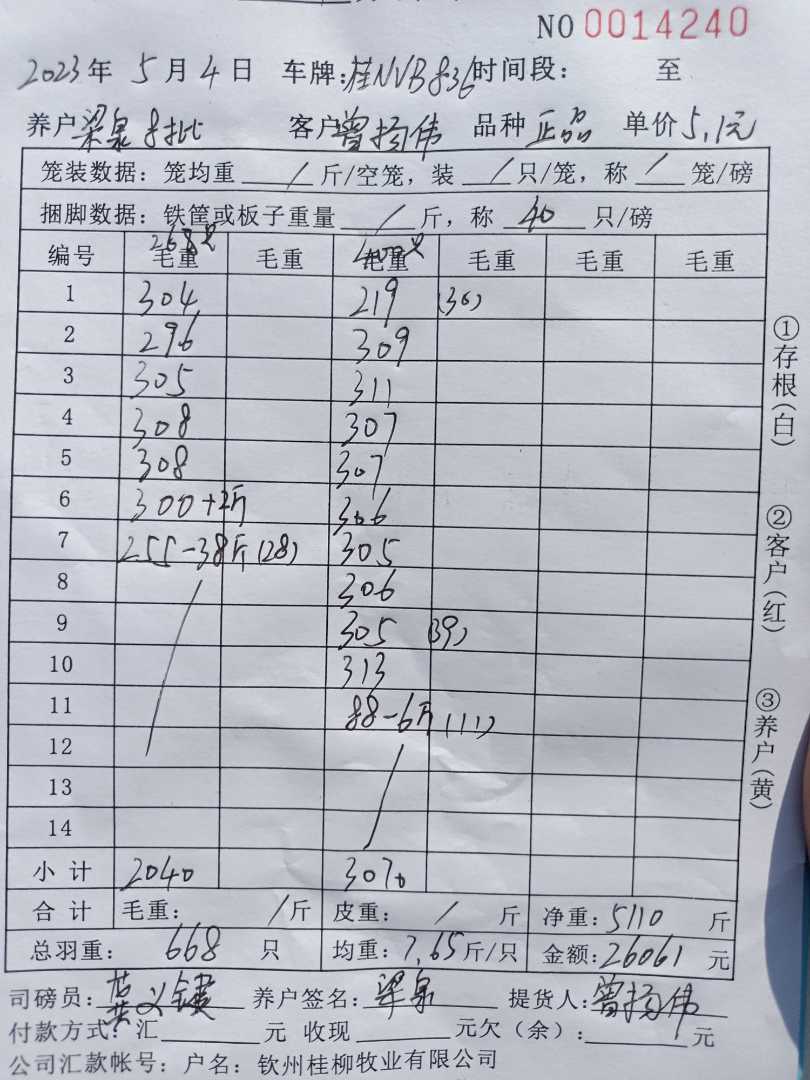 NO 0014240
2023年 5月 4日 车牌:桂NVB836 时间段: 至
养户 梁泉8批 客户 曾扬伟 品种 正品 单价 5.1元
笼装数据: 笼均重 / 斤/空笼, 装 / 只/笼, 称 / 笼/磅
捆脚数据: 铁筐或板子重量 / 斤, 称 40 只/磅
268只 400只
编号 毛重 毛重 毛重 毛重 毛重 毛重
1 304 219 (30)
2 296 309
3 305 311
4 308 307
5 308 307
6 300+2斤 306
7 255-38斤(28) 305
8 306
9 305 (39)
10 313
11 88-6斤(11)
12
13
14
小计 2040 3070
合计 毛重: /斤 皮重: / 斤 净重: 5110 斤
总羽重: 668 只 均重: 7.65斤/只 金额: 26061 元
司磅员: 黄义键 养户签名: 梁泉 提货人: 曾扬伟
付款方式: 汇 元 收现 元欠(余): 元
公司汇款帐号: 户名: 钦州桂柳牧业有限公司
①存根(白)
②客户(红)
③养户(黄)